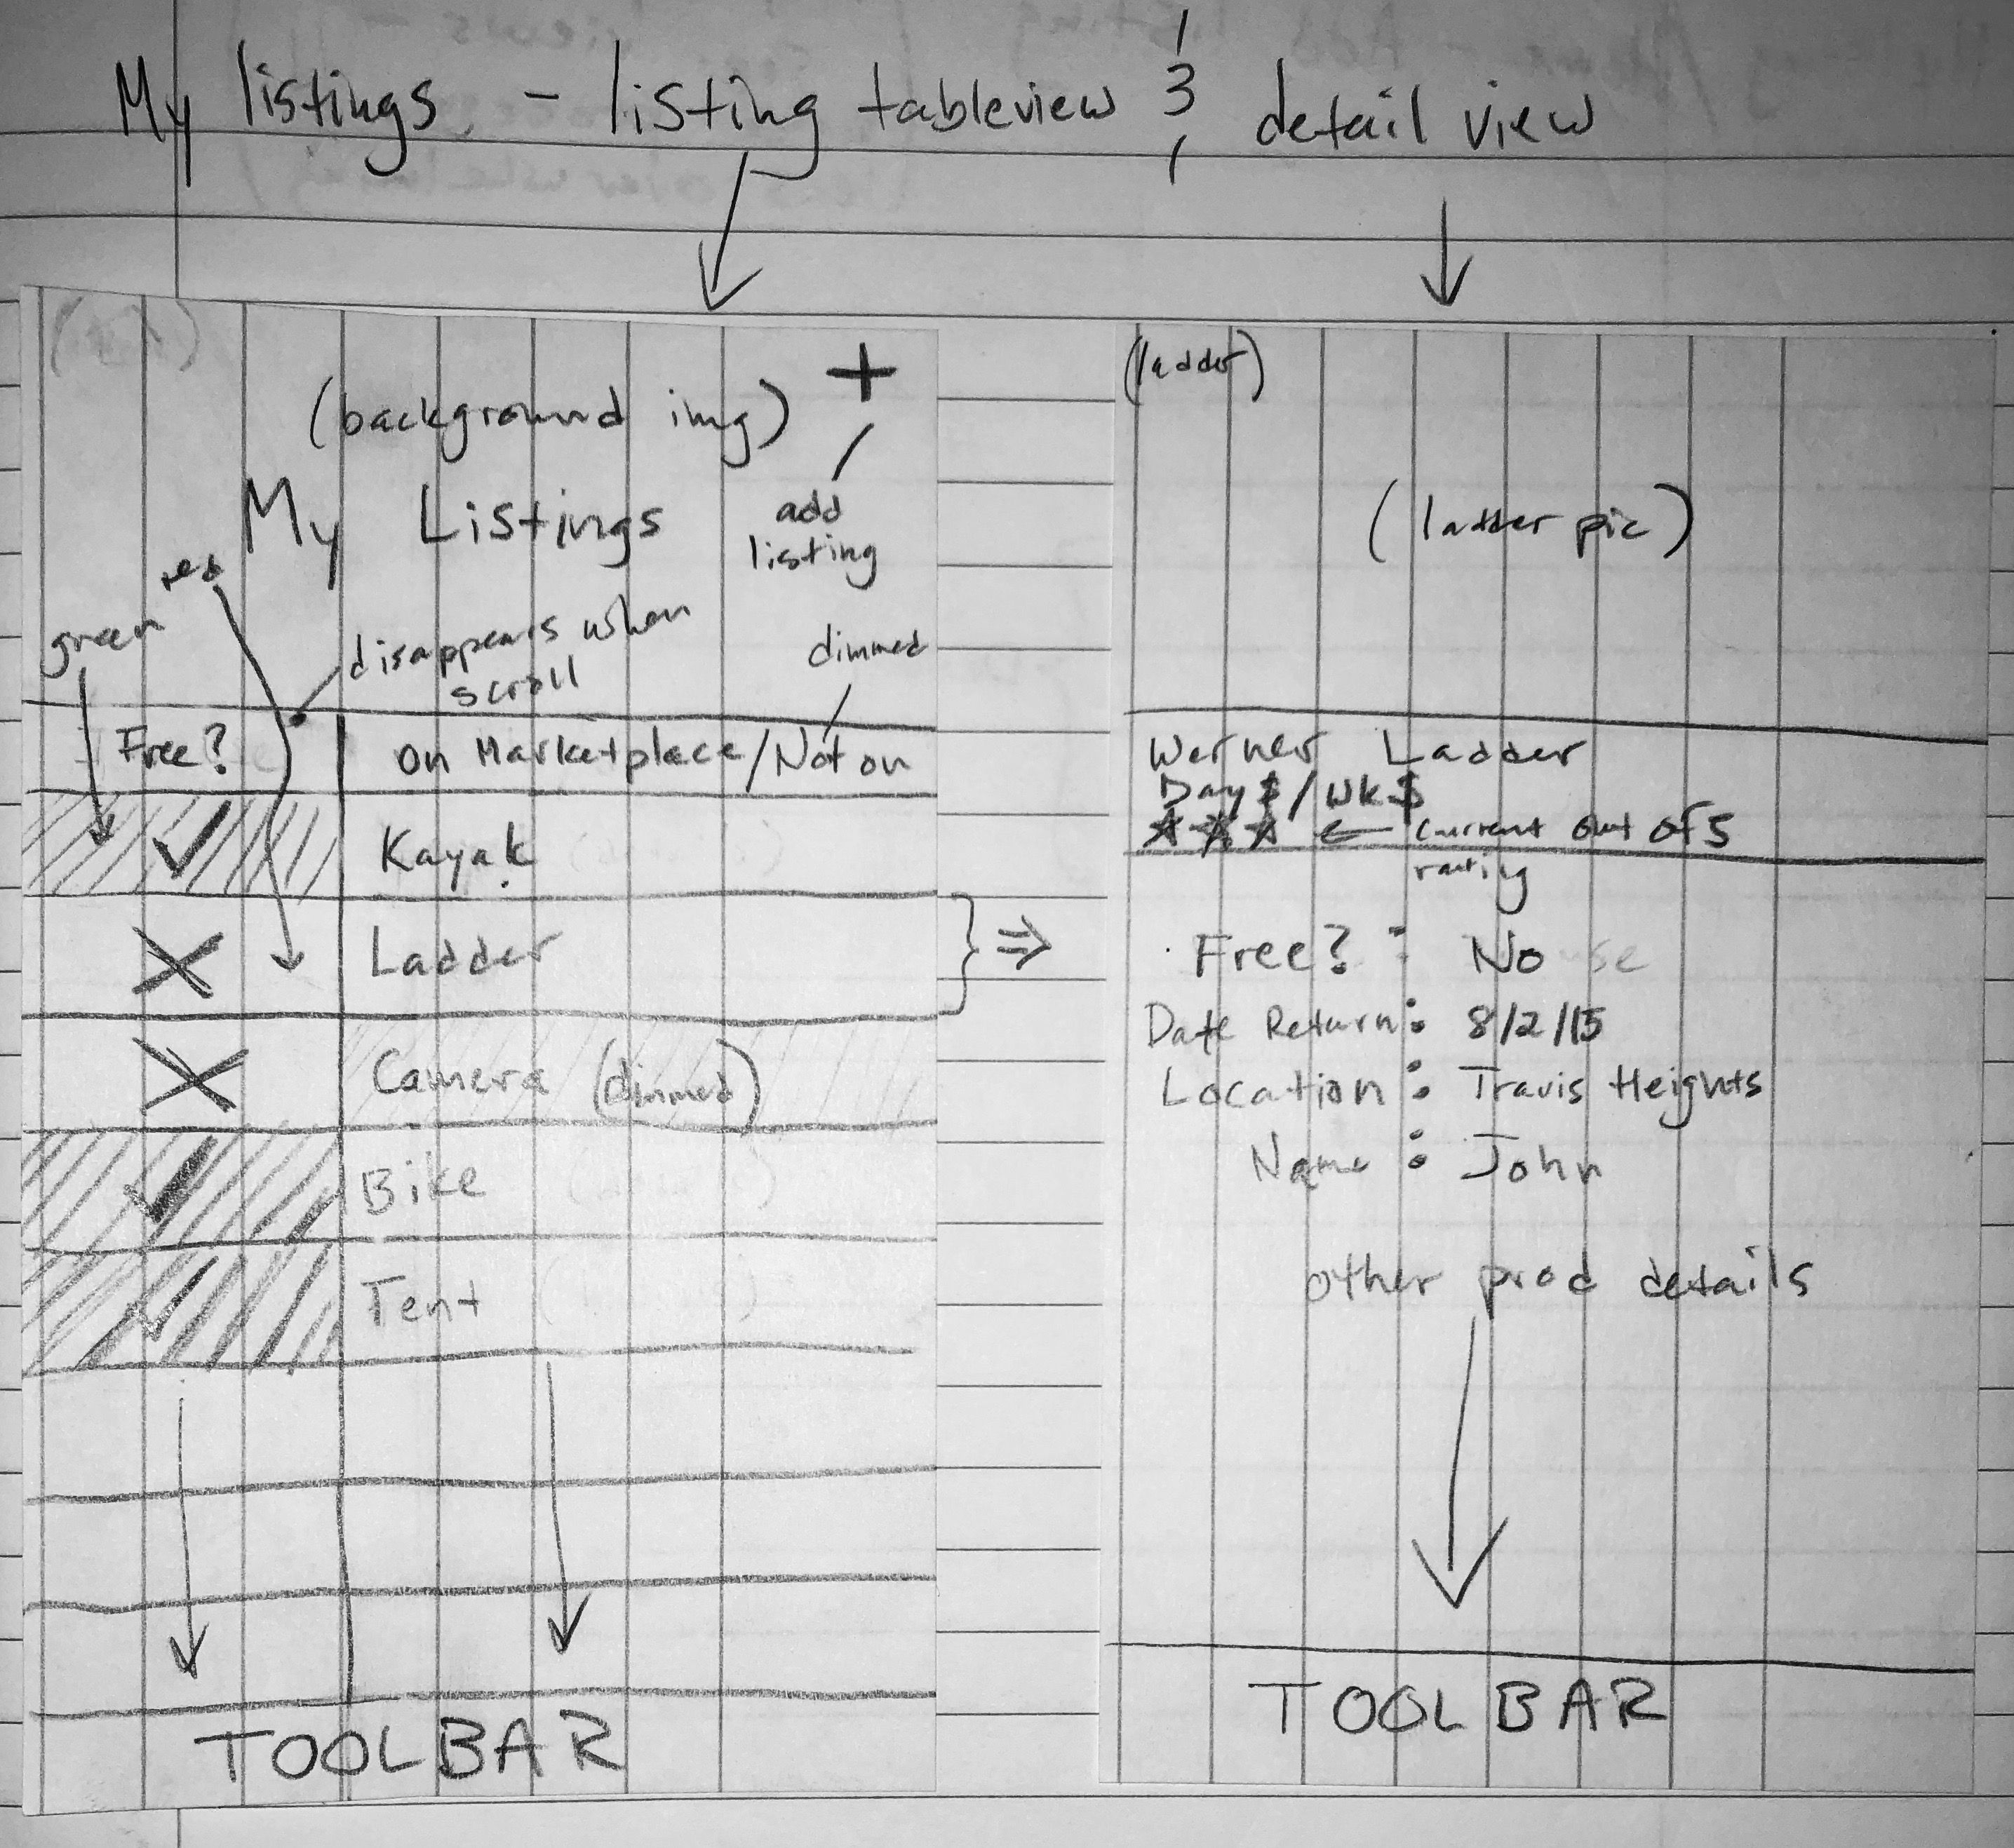 My listings - listing tableview & detail view
(background img) +
My Listings
add
listing
red
green
disappears when
scroll
dimmed
Free? on Marketplace/Not on
✓ Kayak
X Ladder } ⇒
X Camera (dimmed)
✓ Bike
✓ Tent
TOOLBAR
(ladder)
(ladder pic)
Werner Ladder
Day $/Wk $
★★★ ← current out of 5
rating
Free? : No
Date Return: 8/2/15
Location: Travis Heights
Name: John
other prod details
TOOLBAR